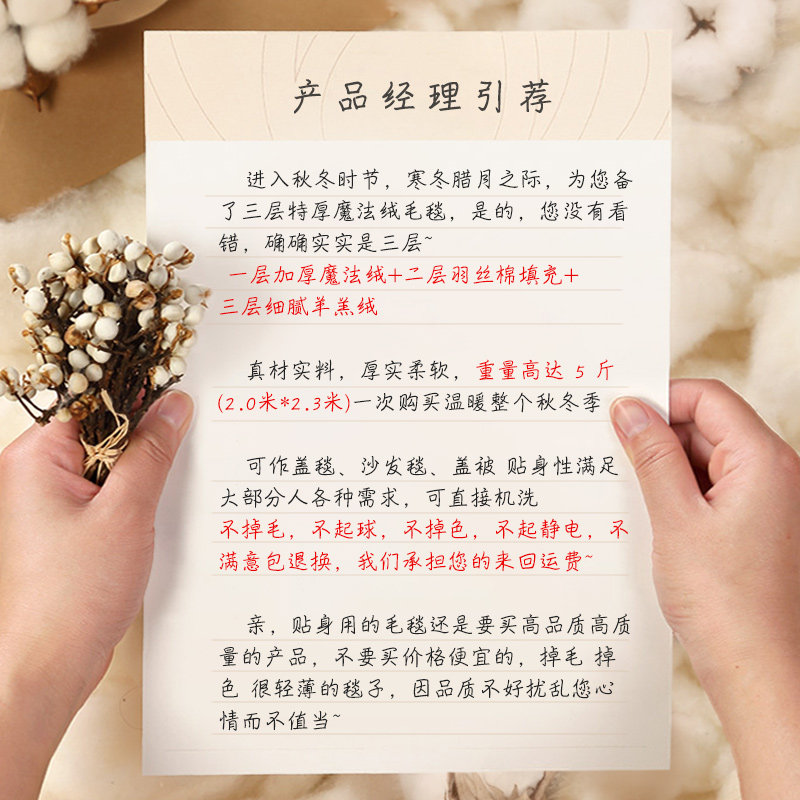 产品经理引荐
进入秋冬时节，寒冬腊月之际，为您备
了三层特厚魔法绒毛毯，是的，您没有看
错，确确实实是三层~
一层加厚魔法绒+二层羽丝棉填充+
三层细腻羊羔绒
真材实料，厚实柔软，重量高达 5 斤
(2.0米*2.3米)一次购买温暖整个秋冬季
可作盖毯、沙发毯、盖被 贴身性满足
大部分人各种需求，可直接机洗
不掉毛，不起球，不掉色，不起静电，不
满意包退换，我们承担您的来回运费~
亲，贴身用的毛毯还是要买高品质高质
量的产品，不要买价格便宜的，掉毛 掉
色 很轻薄的毯子，因品质不好扰乱您心
情而不值当~